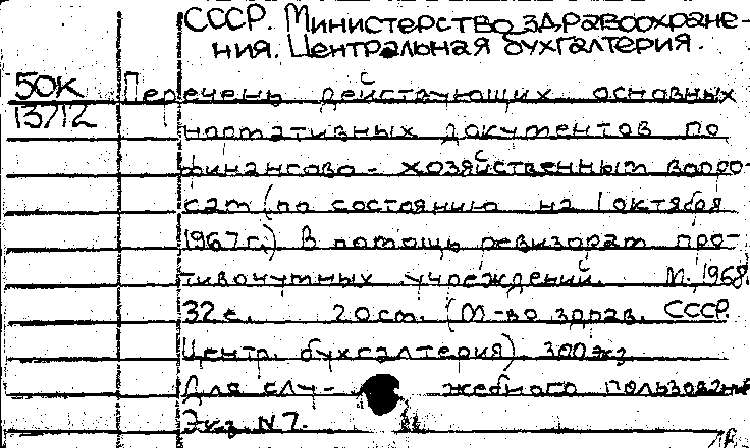 СССР. Министерство здравоохране-
ния. Центральная бухгалтерия.
50к Перечень действующих основных
13712 нормативных документов по
финансово-хозяйственным вопро-
сам (по состоянию на 1 октября
1967 г.) В помощь ревизорам про-
тивочумных учреждений. М., 1968.
32 с. 20 см. (М-во здрав. СССР.
Центр. бухгалтерия). 300 экз.
Для слу- жебного пользования
Экз. N 7.